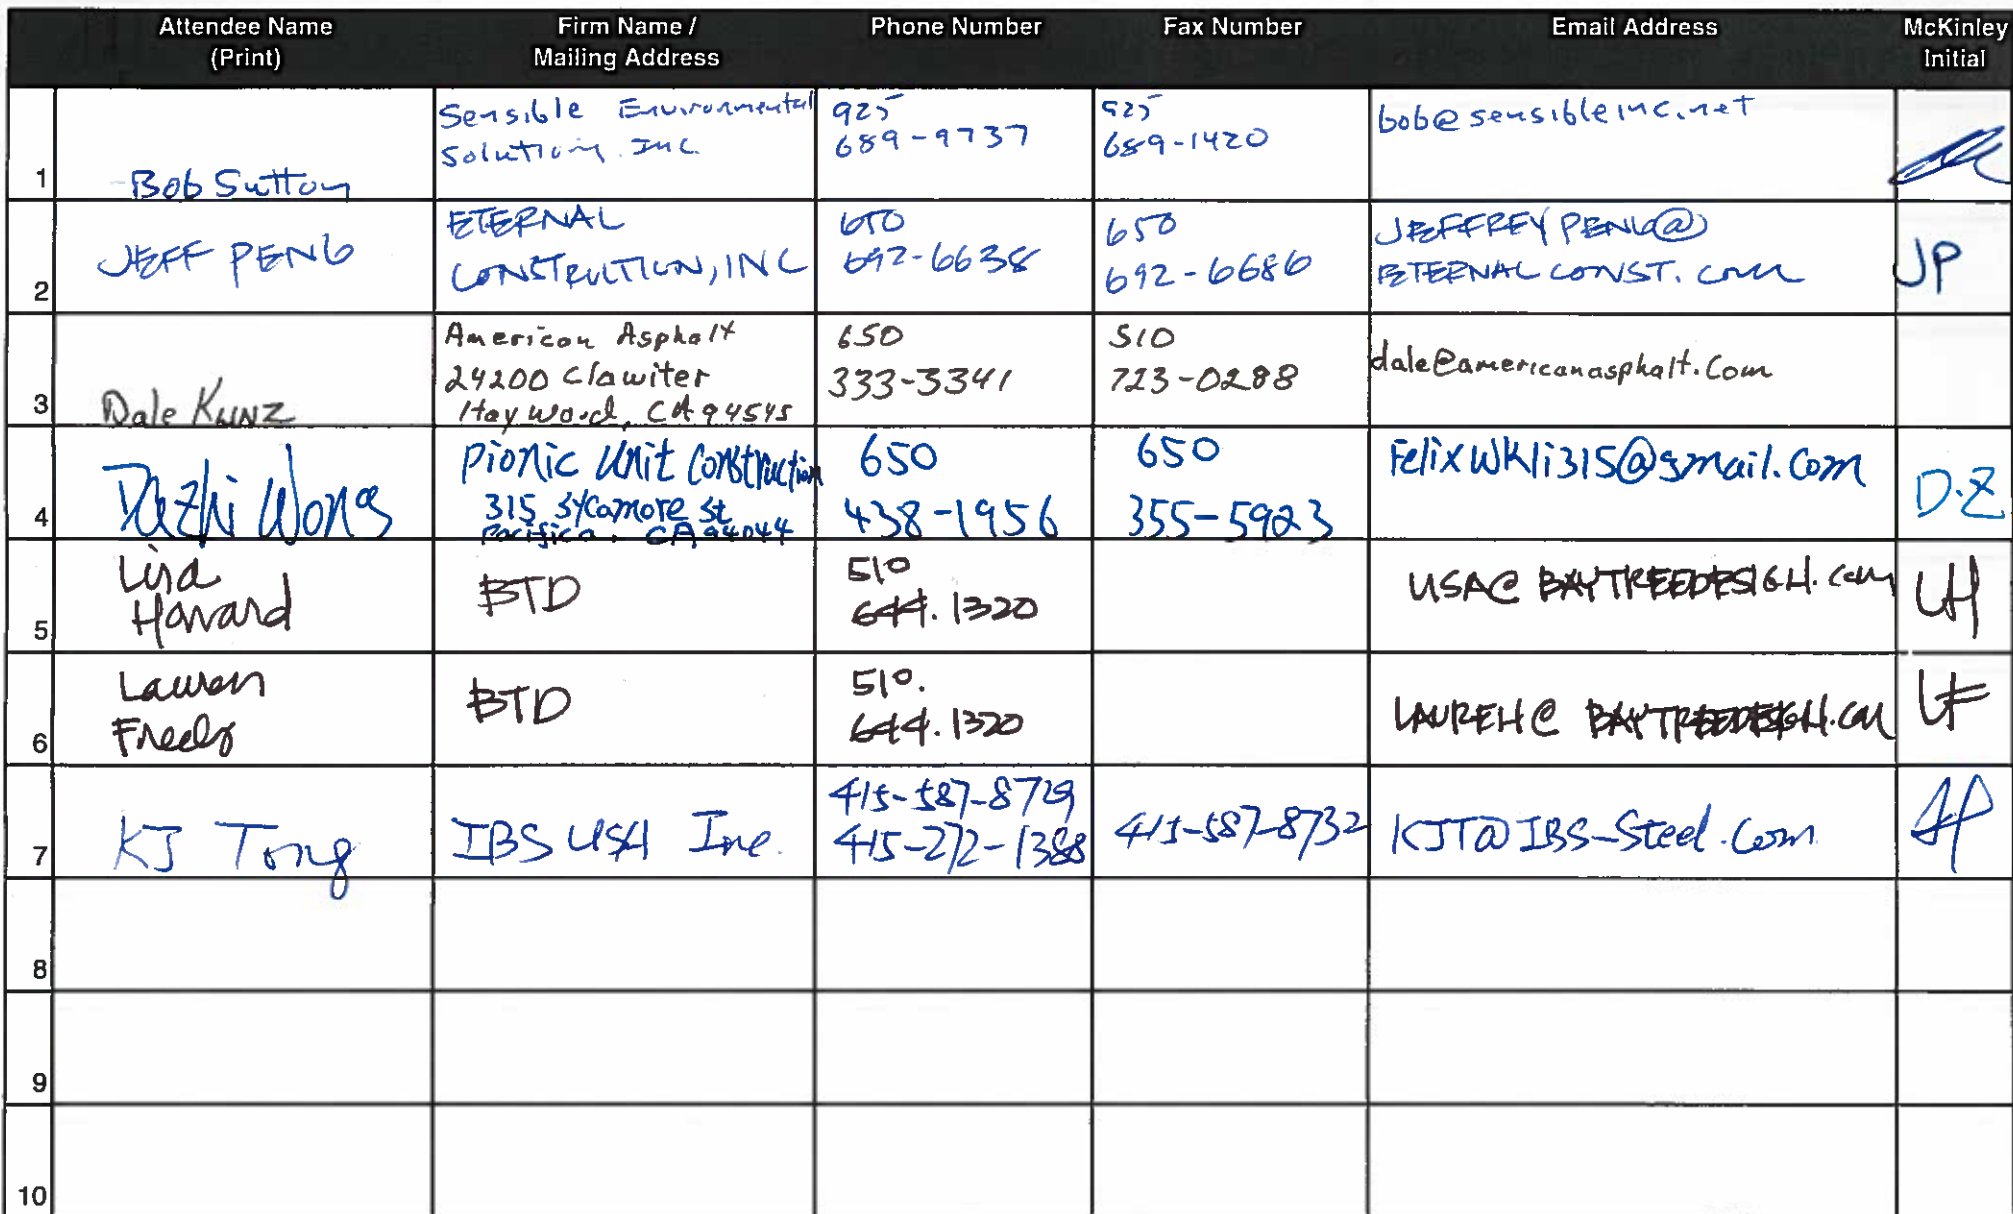 Attendee Name
(Print)
Firm Name /
Mailing Address
Phone Number
Fax Number
Email Address
McKinley
Initial
1
Bob Sutton
Sensible Environmental
Solutions, Inc.
925
689-9737
925
689-1420
bob@sensibleinc.net
2
JEFF PENG
ETERNAL
CONSTRUCTION, INC
650
692-6638
650
692-6686
JEFFREYPENG@
ETERNALCONST.com
JP
3
Dale KUNZ
American Asphalt
24200 Clawiter
Hayward, CA 94545
650
333-3341
510
723-0288
dale@americanasphalt.Com
4
Dazhi Wong
Pionic Unit Construction
315 Sycamore St
Pacifica, CA 94044
650
438-1956
650
355-5923
FelixWKli315@gmail.Com
D.Z
5
Lisa
Howard
BTD
510
644.1320
LISA@BAYTREEDESIGN.com
LH
6
Lauren
BTD
510.
644.1320
LAUREN@BAYTREEDESIGN.com
LF
7
KJ Tong
IBS USA Inc.
415-587-8729
415-272-1388
415-587-8732
KJT@IBS-Steel.Com
8
9
10